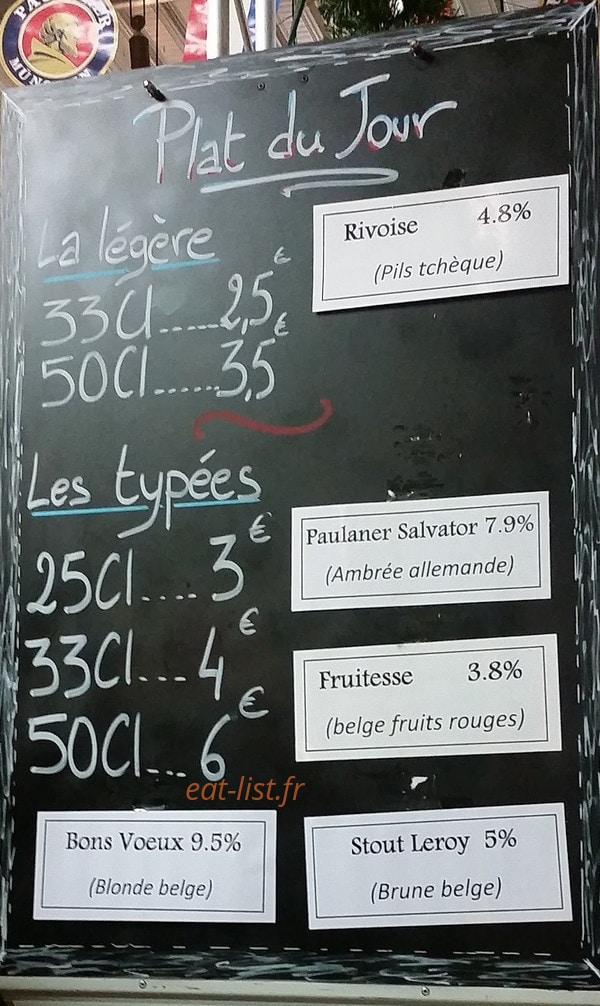 PAULANER
MÜNCHEN
Plat du Jour
La légère
33Cl......2,5€
50Cl......3,5€
Rivoise 4.8%
(Pils tchèque)
Les typées
25Cl.... 3€
33Cl... 4€
50Cl... 6€
Paulaner Salvator 7.9%
(Ambrée allemande)
Fruitesse 3.8%
(belge fruits rouges)
eat-list.fr
Bons Voeux 9.5%
(Blonde belge)
Stout Leroy 5%
(Brune belge)